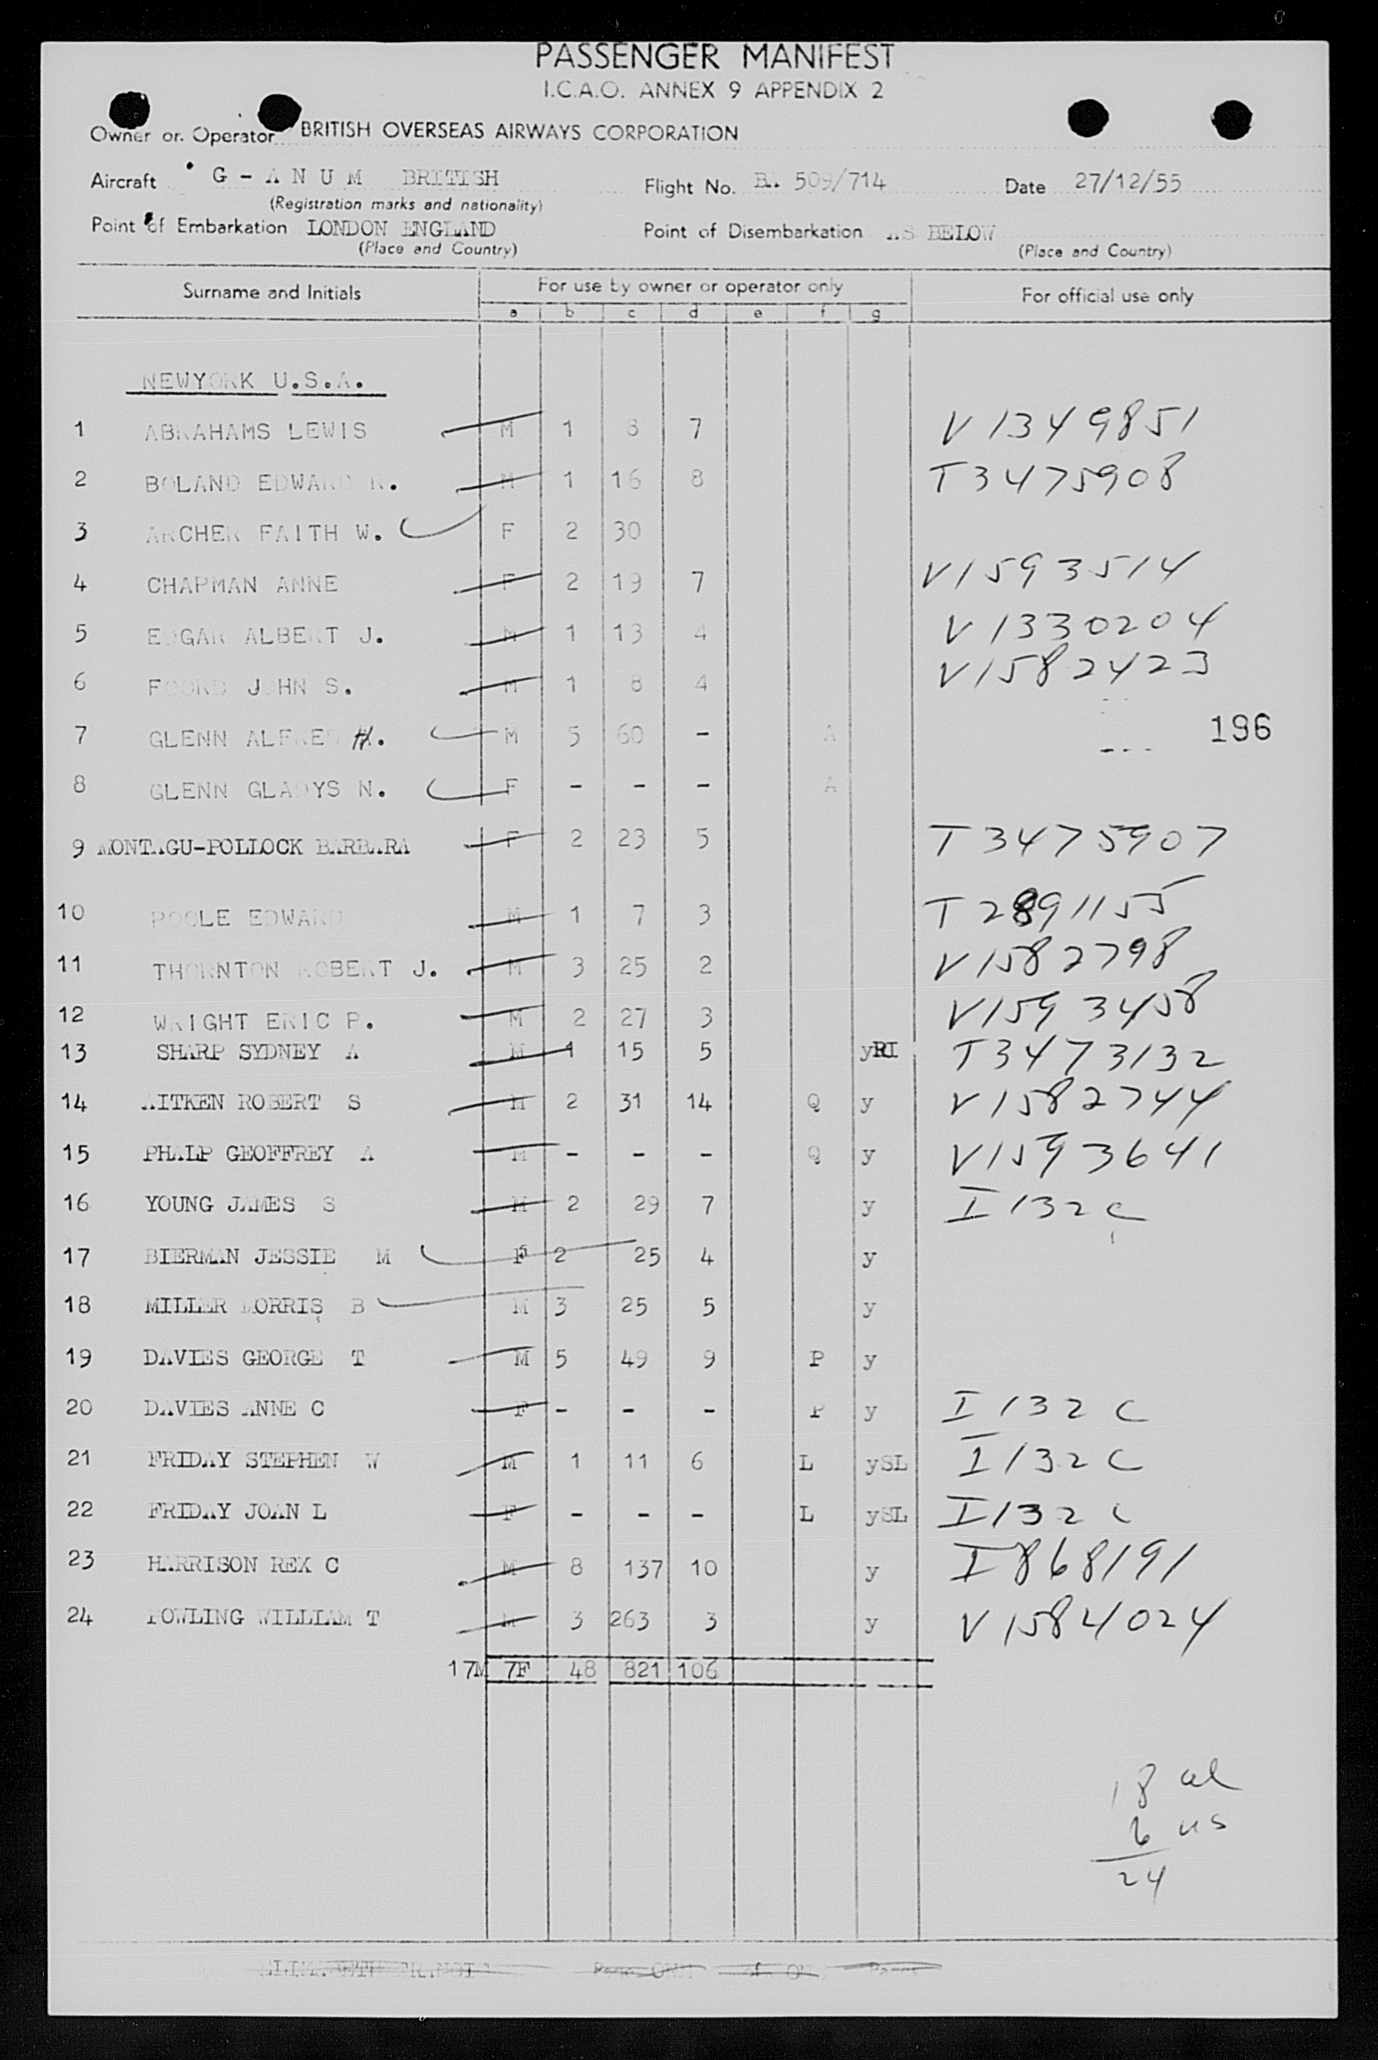 PASSENGER MANIFEST
I.C.A.O. ANNEX 9 APPENDIX 2
Owner or Operator BRITISH OVERSEAS AIRWAYS CORPORATION
Aircraft G - A N U M BRITISH Flight No. BA 509/714 Date 27/12/55
(Registration marks and nationality)
Point of Embarkation LONDON ENGLAND Point of Disembarkation AS BELOW
(Place and Country) (Place and Country)
Surname and Initials For use by owner or operator only For official use only
a b c d e f g
NEWYORK U.S.A.
1 ABRAHAMS LEWIS M 1 8 7 V1349851
2 BOLAND EDWARD R. M 1 16 8 T3475908
3 ARCHER FAITH W. F 2 30
4 CHAPMAN ANNE F 2 19 7 V1593514
5 EDGAR ALBERT J. M 1 13 4 V1330204
6 FOORD JOHN S. M 1 8 4 V1582423
7 GLENN ALFRED H. M 5 60 - A 196
8 GLENN GLADYS N. F - - - A
9 MONTAGU-POLLOCK BARBARA F 2 23 5 T3475907
10 POOLE EDWARD M 1 7 3 T2891155
11 THORNTON ROBERT J. M 3 25 2 V1582798
12 WRIGHT ERIC P. M 2 27 3 V1593458
13 SHARP SYDNEY A M 1 15 5 yRI T3473132
14 AITKEN ROBERT S M 2 31 14 Q y V1582744
15 PHALP GEOFFREY A M - - - Q y V1593641
16 YOUNG JAMES S M 2 29 7 y I 132 C
17 BIERMAN JESSIE M F 2 25 4 y
18 MILLER MORRIS B M 3 25 5 y
19 DAVIES GEORGE T M 5 49 9 P y
20 DAVIES ANNE C F - - - P y I 132 C
21 FRIDAY STEPHEN W M 1 11 6 L ySL I 132 C
22 FRIDAY JOAN L F - - - L ySL I 132 C
23 HARRISON REX C M 8 137 10 y I 868191
24 POWLING WILLIAM T M 3 263 3 y V1584024
17M 7F 48 821 106
18 al
6 us
24